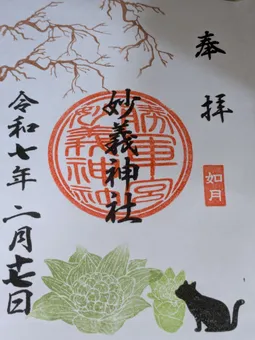 奉拝
如月
勝軍宮
妙義神社
妙義神社
令和七年二月十七日